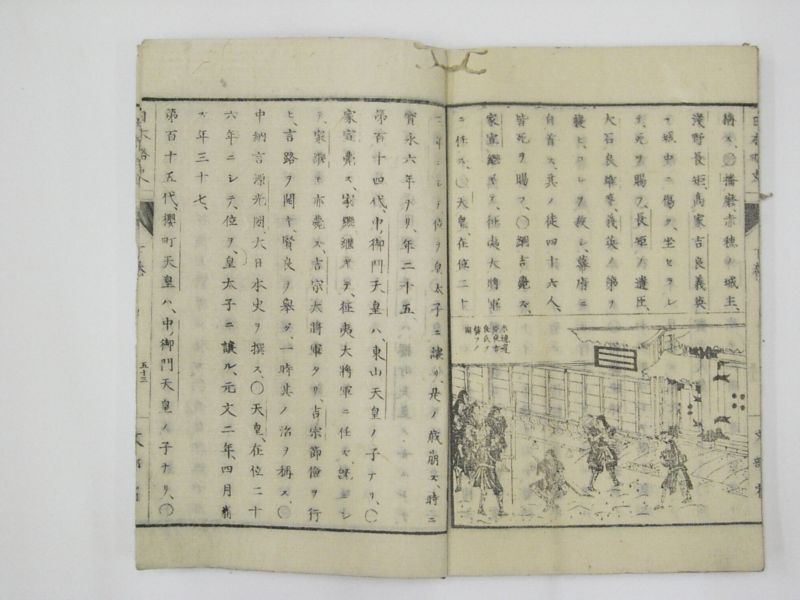 播磨赤穂ノ城主、
淺野長矩、高家吉良義英
ヲ城中ニ傷ケ、坐セラレ
死ヲ賜フ、長矩ノ遺臣、
大石良雄等、義英ノ第ヲ
襲ヒ、コレヲ殺シ、幕府ニ
自首ス、其ノ徒四十六人、
皆死ヲ賜フ、〇綱吉薨ス、
家宣継ギテ、征夷大將軍
ニ任ス、〇天皇在位二十
二年ニシテ位ヲ皇太子ニ讓リ、是ノ歳崩ズ、時ニ
寳永六年ナリ、年三十五、
第百十四代、中御門天皇ハ、東山天皇ノ子ナリ、〇
家宣薨ス、家繼継ギテ、征夷大將軍ニ任ス、
家繼モ亦薨ス、吉宗大將軍タリ、吉宗節儉ヲ行
ヒ、言路ヲ開キ、賢良ヲ舉グ、一時其ノ治ヲ稱ス、〇
中納言源光圀、大日本史ヲ撰ス、〇天皇、在位二十
六年ニシテ、位ヲ皇太子ニ讓ル、元文二年四月崩
ス、年三十七、
第百十五代、櫻町天皇ハ、中御門天皇ノ子ナリ、〇
五十三